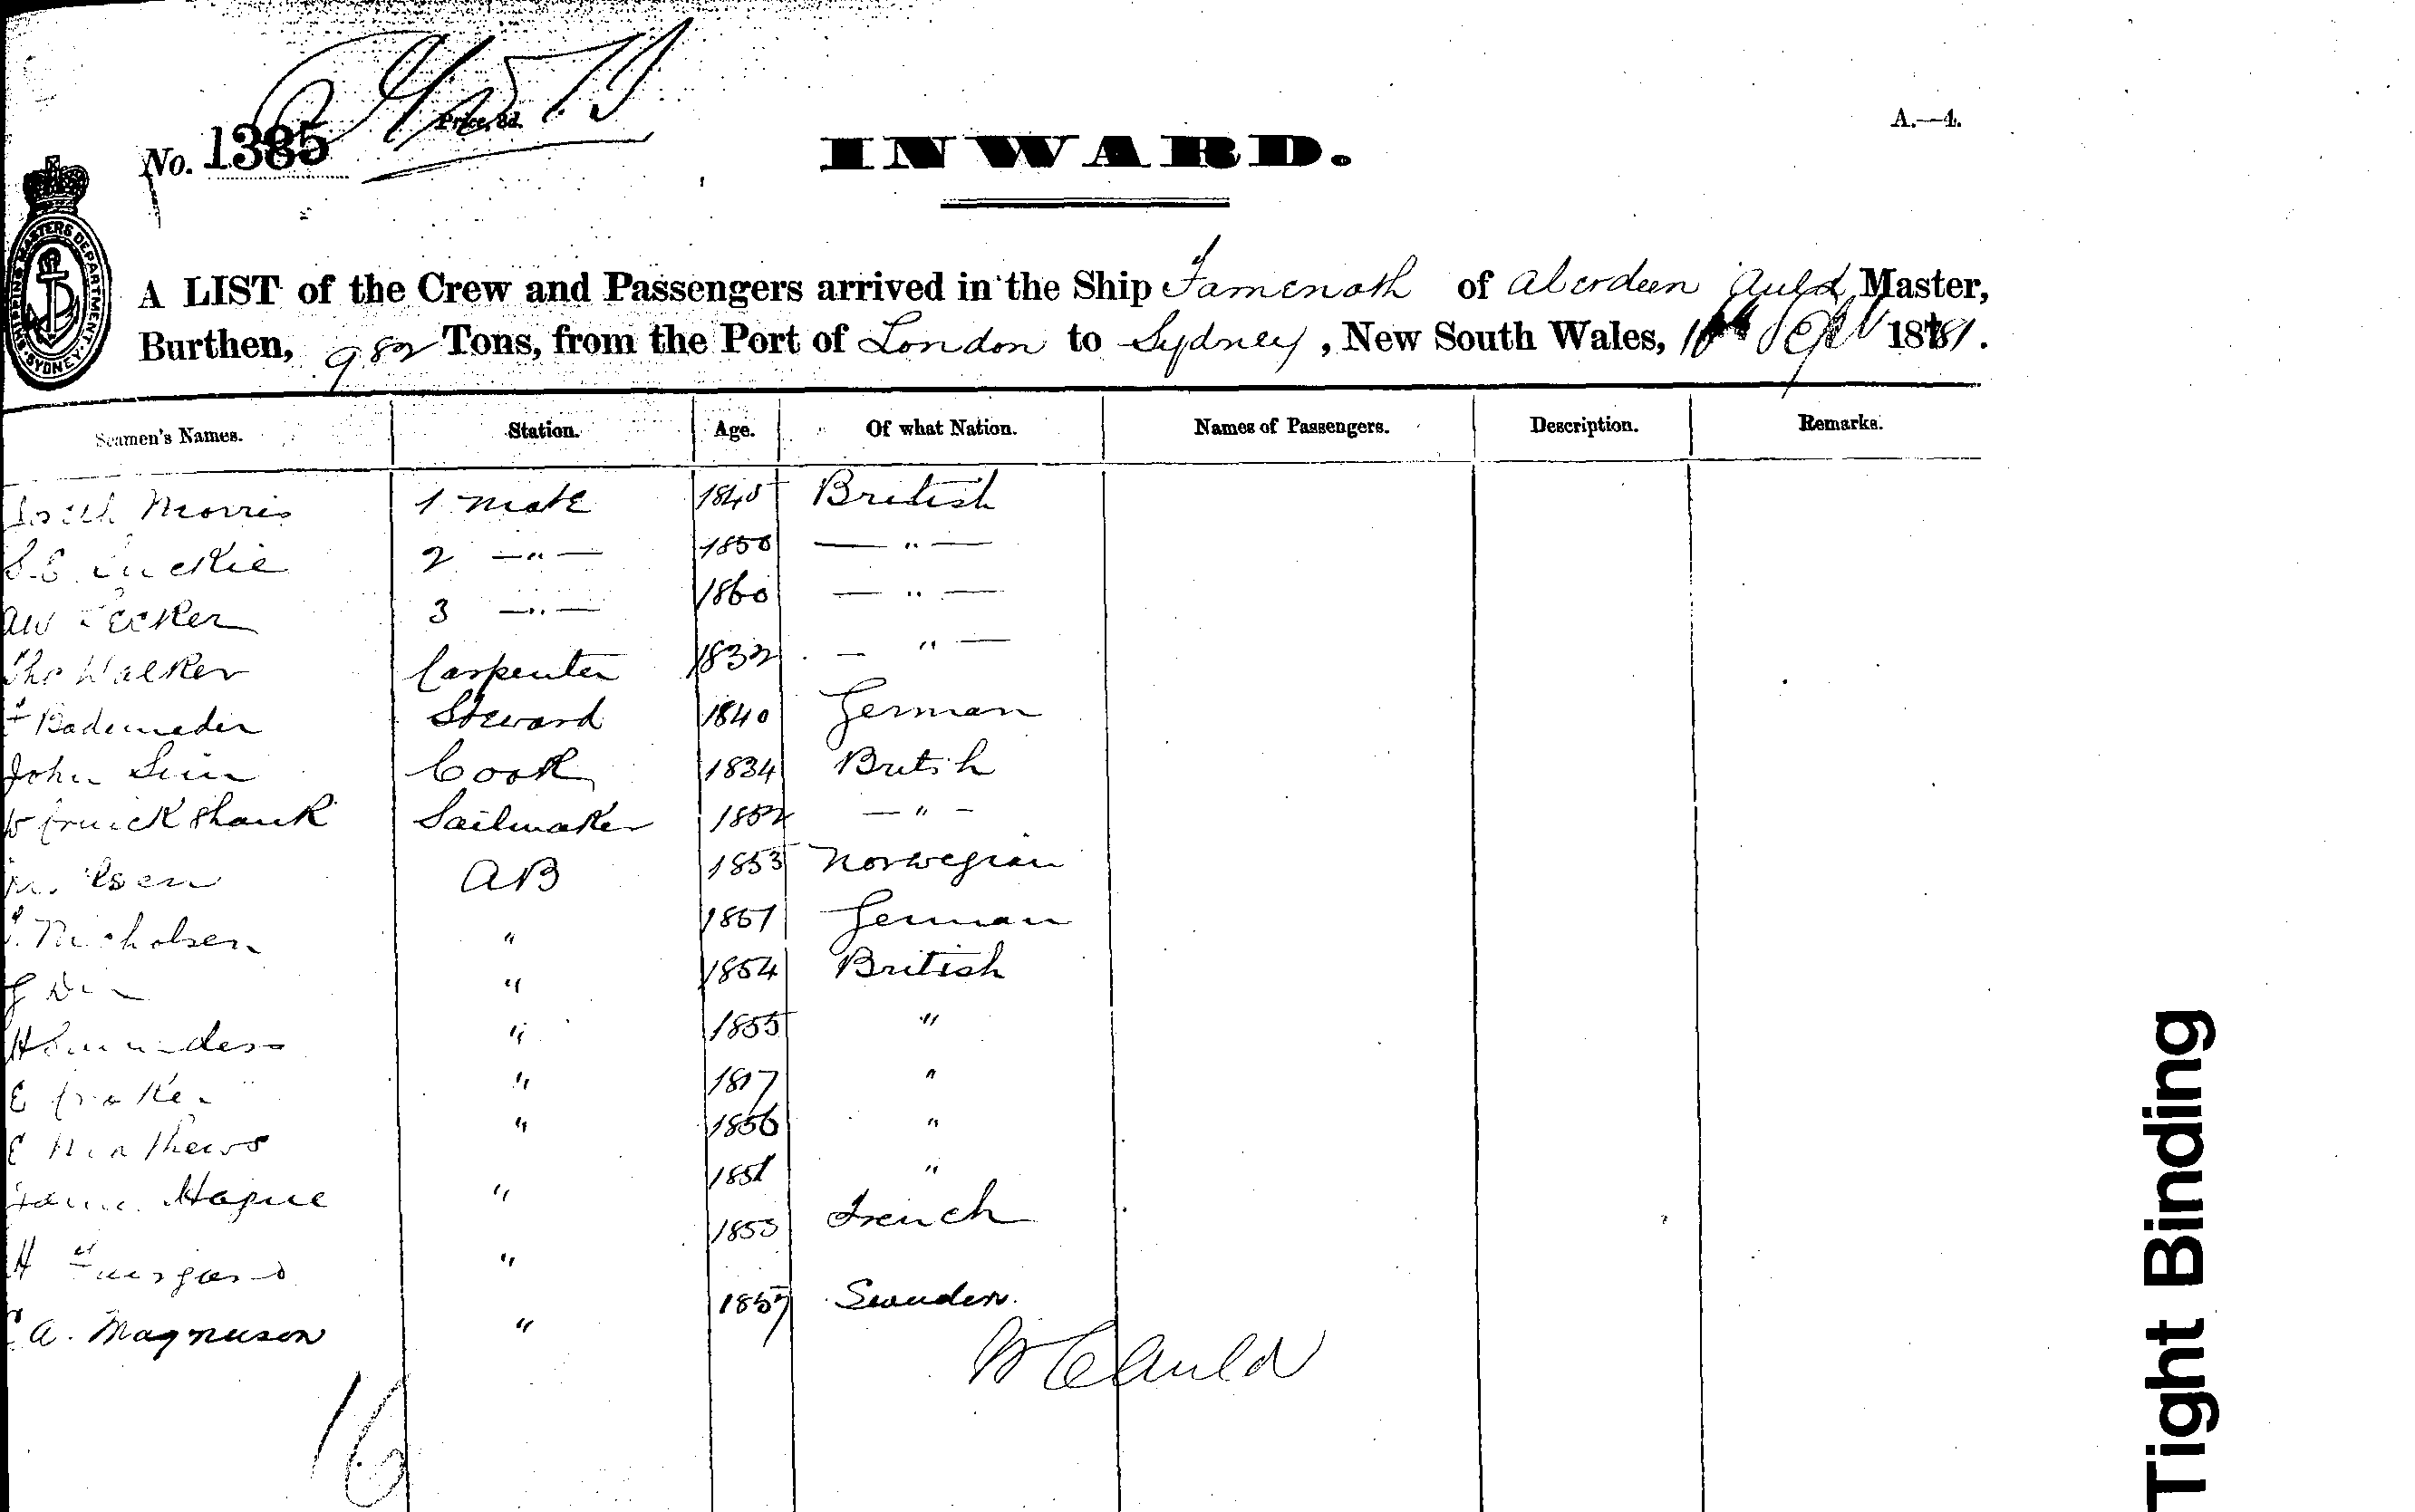 No. 1385
Price, 3d.
INWARD.
A.—4.
SHIPPING MASTERS DEPARTMENT. SYDNEY.
A LIST of the Crew and Passengers arrived in the Ship Famenoth of Aberdeen Auld Master,
Burthen, 982 Tons, from the Port of London to Sydney, New South Wales, Sept 1881.
Seamen's Names. Station. Age. Of what Nation. Names of Passengers. Description. Remarks.
Morris 1 mate 1845 British
2 —"— 1850 — " —
AW 3 —"— 1860 — " —
Tho Walker Carpenter 1832 — " —
Steward 1840 German
John Sim Cook 1834 British
W Cruickshank Sailmaker 1852 — " —
AB 1853 Norwegian
Nicholsen " 1851 German
G " 1854 British
H " 1855 "
E " "
E Mathews " 1856 "
Hague " 1851 "
H " 1853 French
A. Magnuson " 1857 Sweeden.
W C Auld
16
Tight Binding